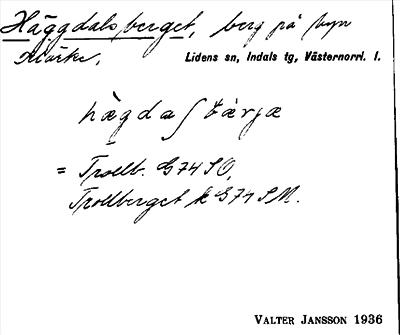 Häggdalsberget, berg på byn
Märke, Lidens sn, Indals tg, Västernorrl. l.
hægdaʃbærjæ
= Trollb. G74SO,
Trollberget k G74SM.
VALTER JANSSON 1936